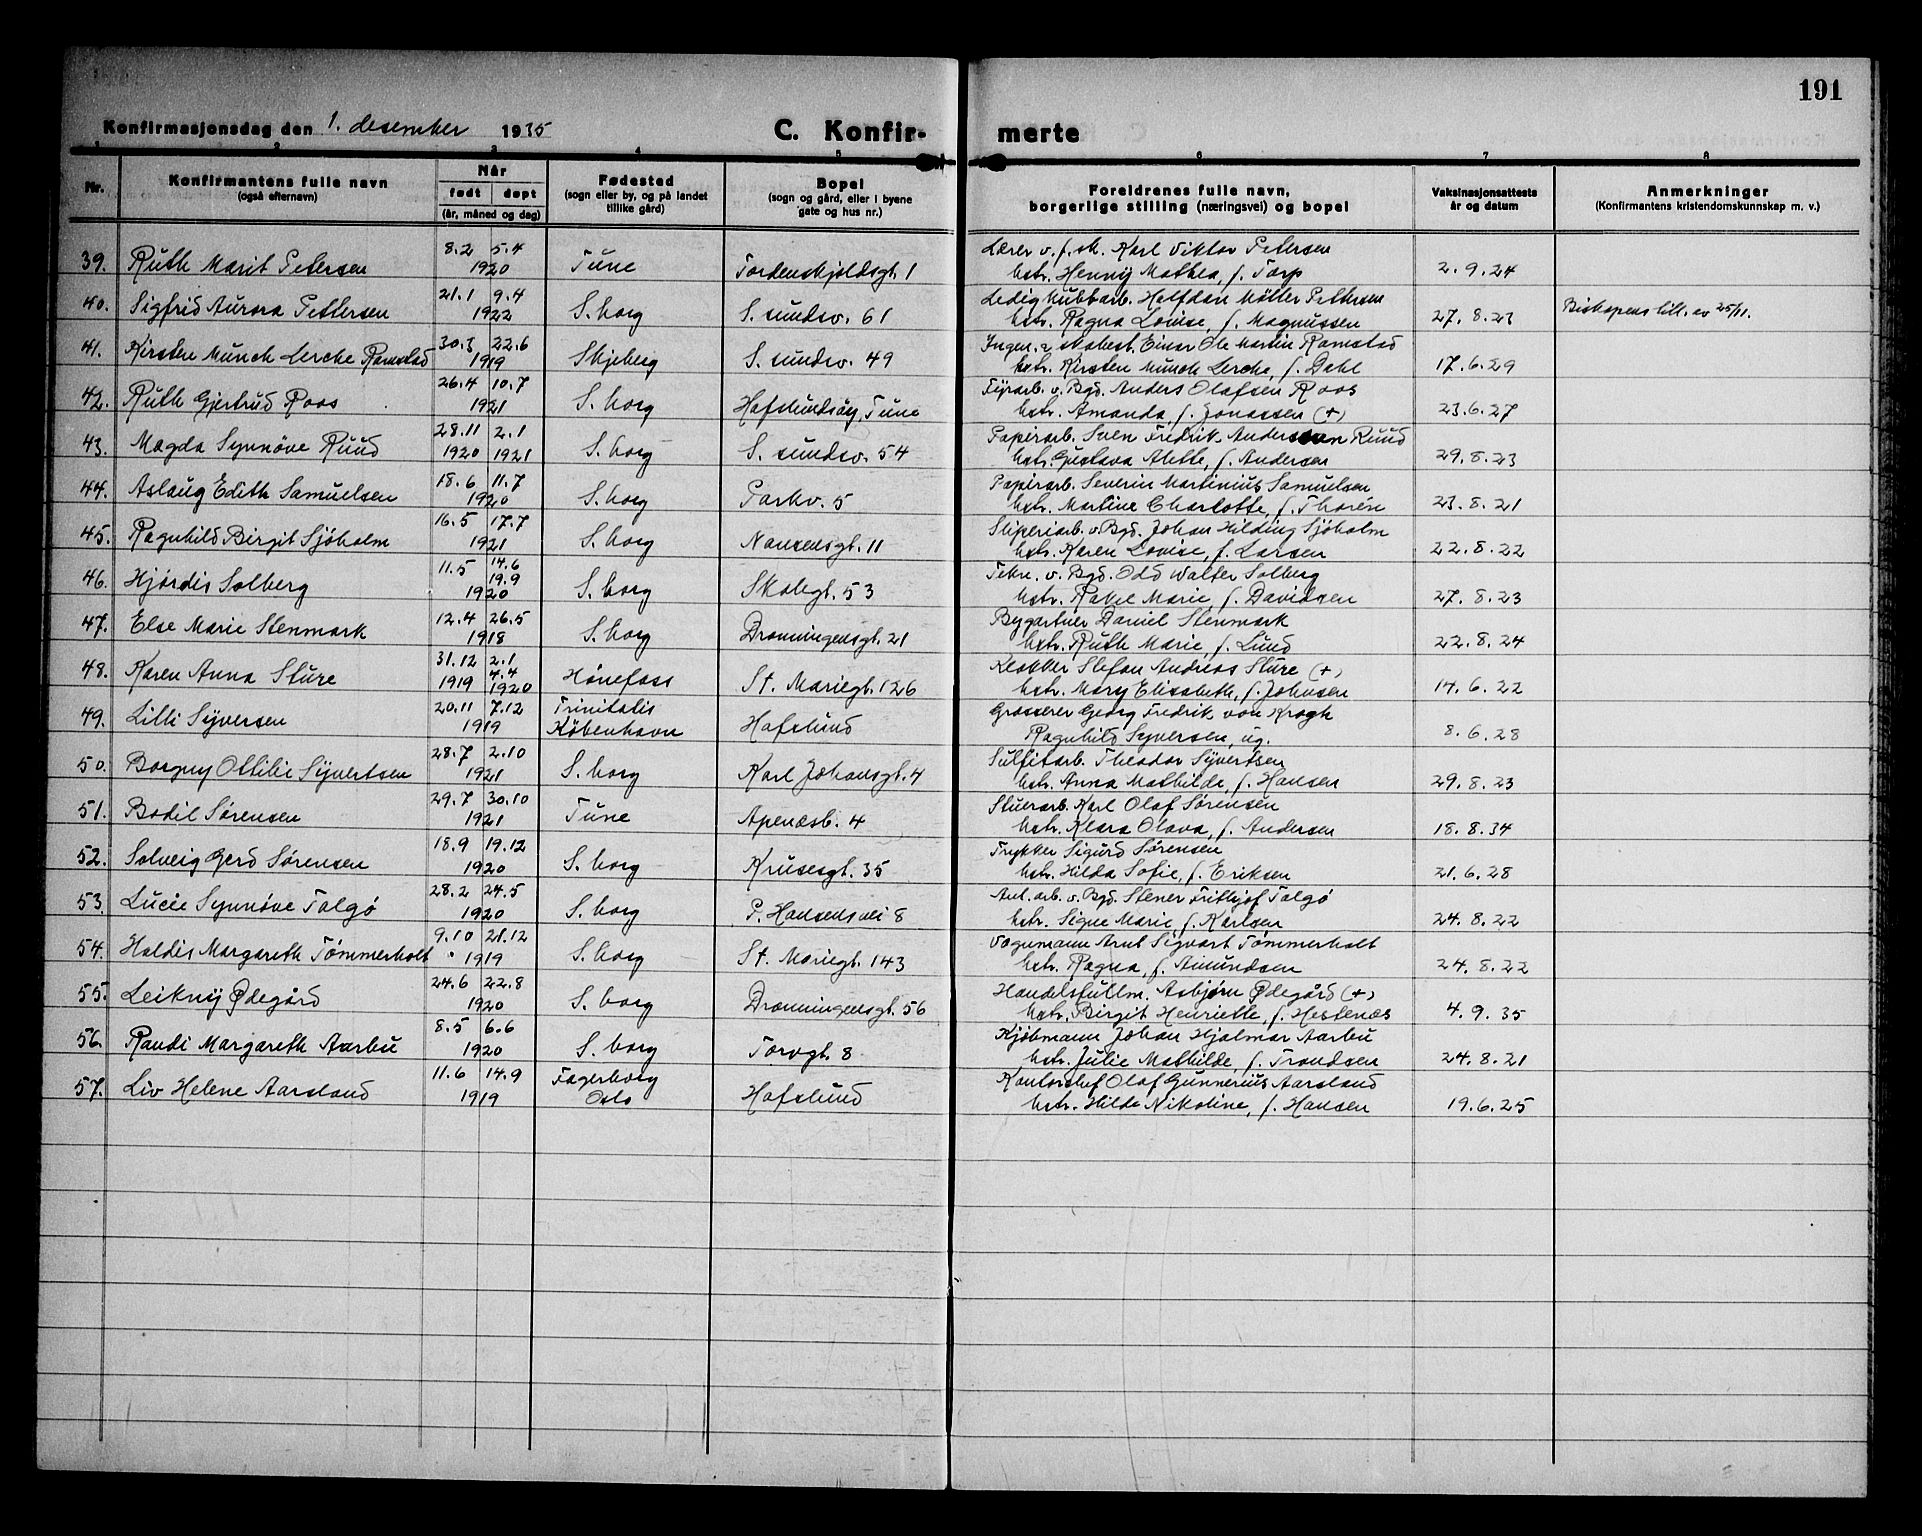 191
Konfirmasjonsdag den 1. desember 1935
C. Konfirmerte
1 2 3 4 5 6 7 8
Nr. Konfirmantens fulle navn (også efternavn) Når født døpt (år, måned og dag) Fødested (sogn eller by, og på landet tillike gård) Bopel (sogn og gård, eller i byene gate og hus nr.) Foreldrenes fulle navn, borgerlige stilling (næringsvei) og bopel Vaksinasjonsattests år og datum Anmerkninger (Konfirmantens kristendomskunnskap m. v.)
39. Ruth Marit Petersen 8.2 5.4 1920 Tune Tordenskjoldsgt. 1 Lærer v. f. sk. Karl Viktor Petersen
hstr. Henny Mathea, f. Torp 2.9.24
40. Sigfrid Aurora Pettersen 21.1 9.4 1922 S.borg S. sundsv. 61 Ledig kubbarb. Halfdan Møller Pettersen
hstr. Ragna Lovise, f. Magnussen 27.8.23 Biskopens till. av 25/11.
41. Kirsten Munch Lerche Ramstad 30.3 22.6 1919 Skjeberg S. sundsv. 49 Ingen. & skobest. Einar Ole Martin Ramstad
hstr. Kirsten Munch Lerche, f. Dahl 17.6.29
42. Ruth Gjertrud Roos 26.4 10.7 1921 S.borg Hafslundsøy, Tune Fyrarb. v. Bgd. Anders Olafsen Roos
hstr. Amanda, f. Jonassen (+) 23.6.27
43. Magda Synnøve Ruud 28.11 2.1 1920 1921 S.borg S. sundsv. 54 Papirarb. Sven Fredrik Andersen Ruud
hstr. Gustava Alette, f. Andersen 29.8.23
44. Aslaug Edith Samuelsen 18.6 11.7 1920 S.borg Parkv. 5 Papirarb. Severin Martinius Samuelsen
hstr. Martine Charlotte, f. Thorén 23.8.21
45. Ragnhild Birgit Sjöholm 16.5 17.7 1921 S.borg Nansensgt. 11 Sliperiarb. v. Bgd. Johan Hilding Sjöholm
hstr. Karen Lovise, f. Larsen 22.8.22
46. Hjørdis Solberg 11.5 14.6 19.9 1920 S.borg Skolegt. 53 Tekn. v. Bgd. Odd Walter Solberg
hstr. Rakel Marie, f. Davidsen 27.8.23
47. Else Marie Stenmark 12.4 26.5 1918 S.borg Dronningensgt. 21 Bygartner Daniel Stenmark
hstr. Ruth Marie, f. Lund 22.8.24
48. Karen Anna Sture 31.12 2.1 4.4 1919 1920 Hønefoss St. Mariegt. 126 Klokker Stefan Andreas Sture (+)
hstr. Mary Elisabeth, f. Johnsen 14.6.22
49. Lilli Syversen 20.11 7.12 1919 Trinitatis København Hafslund Grosserer Georg Fredrik von Krogh
Ragnhild Syversen, ug. 8.6.28
50. Borgny Ottilie Syvertsen 28.7 2.10 1921 S.borg Karl Johansgt. 4 Sulfitarb. Theodor Syvertsen
hstr. Anna Mathilde, f. Hansen 29.8.23
51. Bodil Sørensen 29.7 30.10 1921 Tune Apenæsb. 4 Stuerarb. Karl Olaf Sørensen
hstr. Klara Olava, f. Andersen 18.8.34
52. Solveig Gerd Sørensen 18.9 19.12 1920 S.borg Krusesgt. 35 Trykker Sigurd Sørensen
hstr. Hilda Sofie, f. Eriksen 21.6.28
53. Lucie Synnøve Talgø 28.2 24.5 1920 S.borg P. Hansensvei 8 Anl. arb. v. Bgd. Stener Frithjof Talgø
hstr. Signe Marie, f. Karlsen 24.8.22
54. Haldis Margareth Tømmerholt 9.10 21.12 1919 S.borg St. Mariegt. 143 Vognmann Arnt Sigvart Tømmerholt
hstr. Ragna, f. Amundsen 24.8.22
55. Leikny Ødegård 24.6 22.8 1920 S.borg Dronningensgt. 56 Handelsfullm. Asbjørn Ødegård (+)
hstr. Birgit Henriette, f. Hestenæs 4.9.35
56. Randi Margareth Aarbu 8.5 6.6 1920 S.borg Torvgt. 8 Kjøbmann Johan Hjalmar Aarbu
hstr. Julie Mathilde, f. Trondsen 24.8.21
57. Liv Helene Aarsland 11.6 14.9 1919 Fagerborg Oslo Hafslund Kontorchef Olaf Gunnerius Aarsland
hstr. Hilda Nikoline, f. Hansen 19.6.25